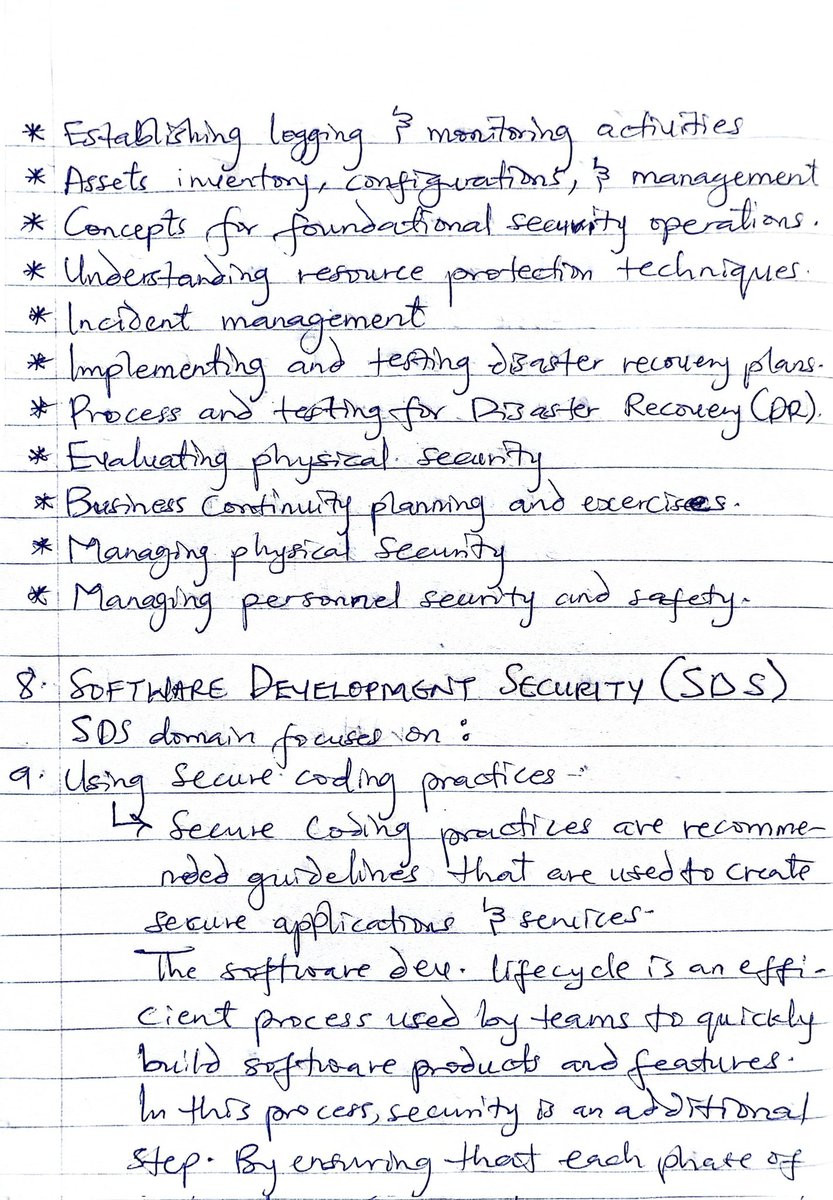 * Establishing logging & monitoring activities
* Assets inventory, configurations, & management
* Concepts for foundational security operations.
* Understanding resource protection techniques.
* Incident management
* Implementing and testing disaster recovery plans.
* Process and testing for Disaster Recovery (DR).
* Evaluating physical security
* Business Continuity planning and exercises.
* Managing physical security
* Managing personnel security and safety.
8. SOFTWARE DEVELOPMENT SECURITY (SDS)
SDS domain focuses on:
a. Using Secure coding practices -
↳ Secure Coding practices are recomme-
nded guidelines that are used to create
secure applications & services-
The software dev. lifecycle is an effi-
cient process used by teams to quickly
build software products and features.
In this process, security is an additional
step. By ensuring that each phase of